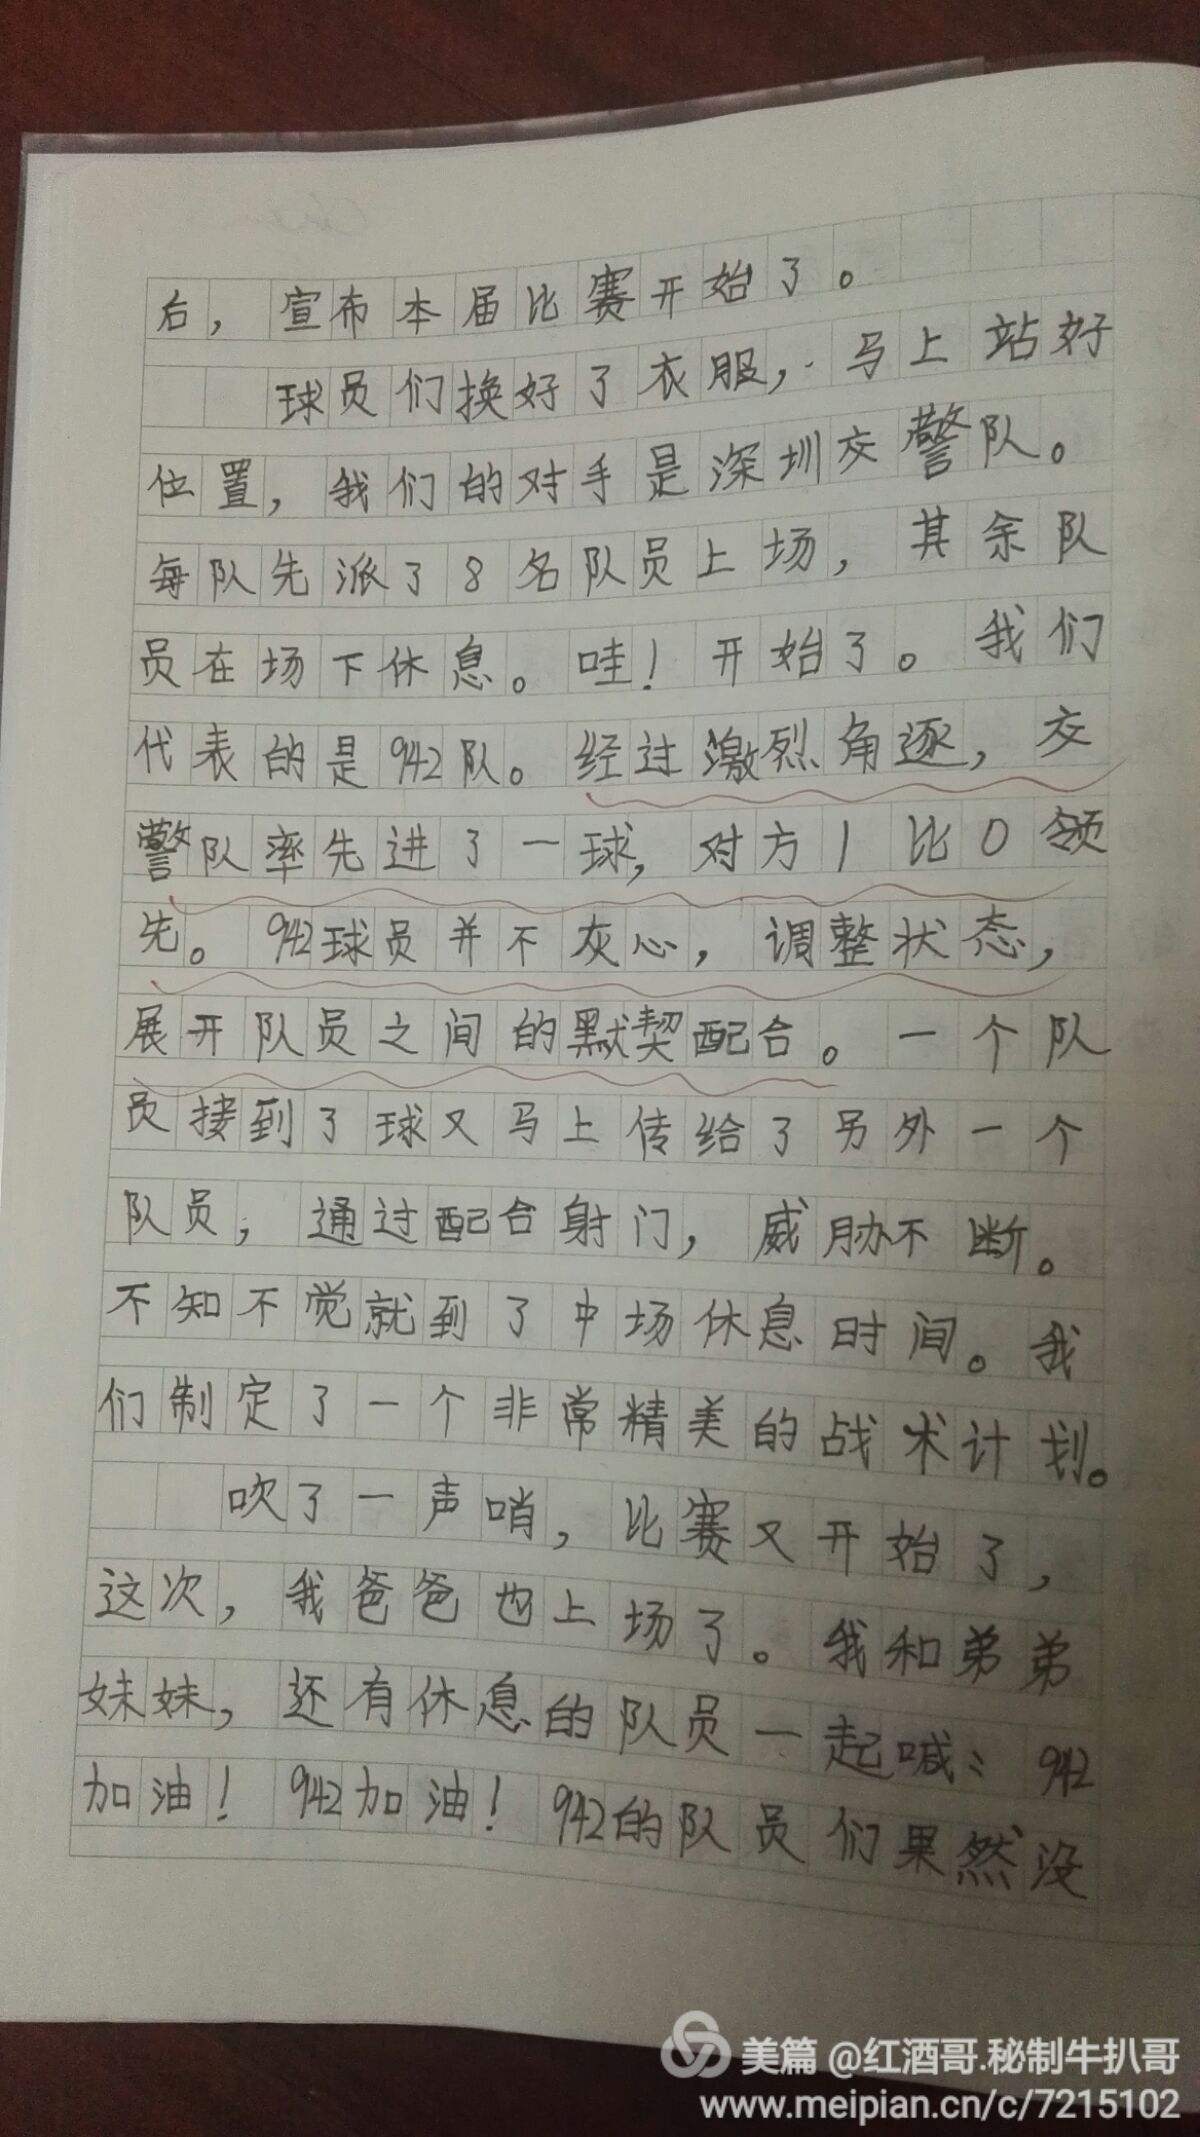 后，宣布本届比赛开始了。
球员们换好了衣服，马上站好
位置，我们的对手是深圳交警队。
每队先派了8名队员上场，其余队
员在场下休息。哇！开始了。我们
代表的是942队。经过激烈角逐，交
警队率先进了一球，对方1比0领
先。942球员并不灰心，调整状态，
展开队员之间的默契配合。一个队
员接到了球又马上传给了另外一个
队员，通过配合射门，威胁不断。
不知不觉就到了中场休息时间。我
们制定了一个非常精美的战术计划。
吹了一声哨，比赛又开始了，
这次，我爸爸也上场了。我和弟弟
妹妹，还有休息的队员一起喊：942
加油！942加油！942的队员们果然没
美篇 @红酒哥.秘制牛扒哥
www.meipian.cn/c/7215102